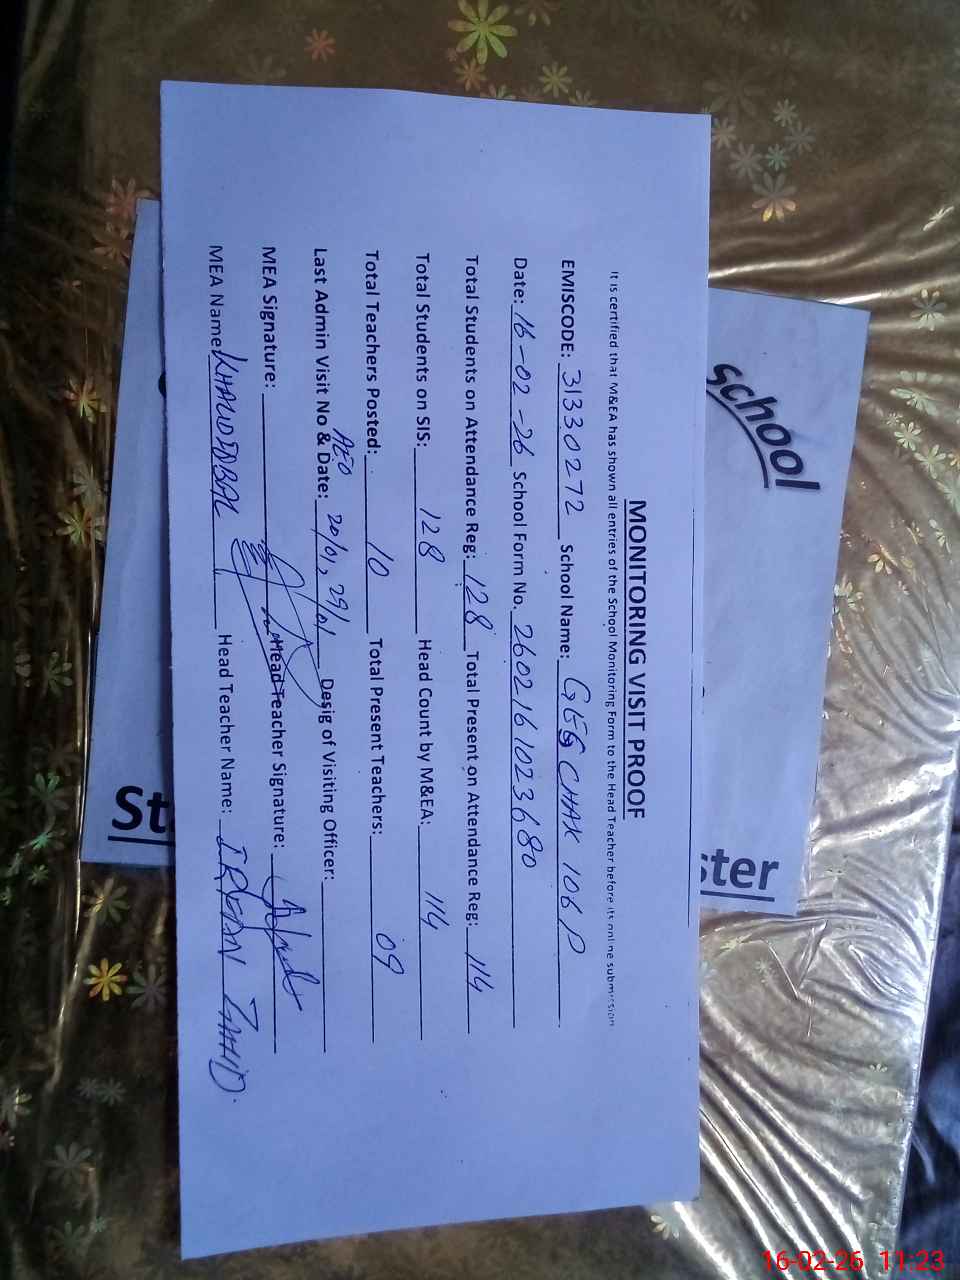 MONITORING VISIT PROOF
It is certified that M&EA has shown all entries of the School Monitoring Form to the Head Teacher before its online submission
EMISCODE: 31330272 School Name: GES CHAK 106 P
Date: 16-02-26 School Form No. 2602161023680
Total Students on Attendance Reg: 128 Total Present on Attendance Reg: 114
Total Students on SIS: 128 Head Count by M&EA: 114
Total Teachers Posted: 10 Total Present Teachers: 09
AEO
Last Admin Visit No & Date: 20/01, 29/01 Desig of Visiting Officer:
MEA Signature: Head Teacher Signature:
MEA Name KHALID IQBAL Head Teacher Name: IRFAN ZAHID.
school
ster
16-02-26 11:23